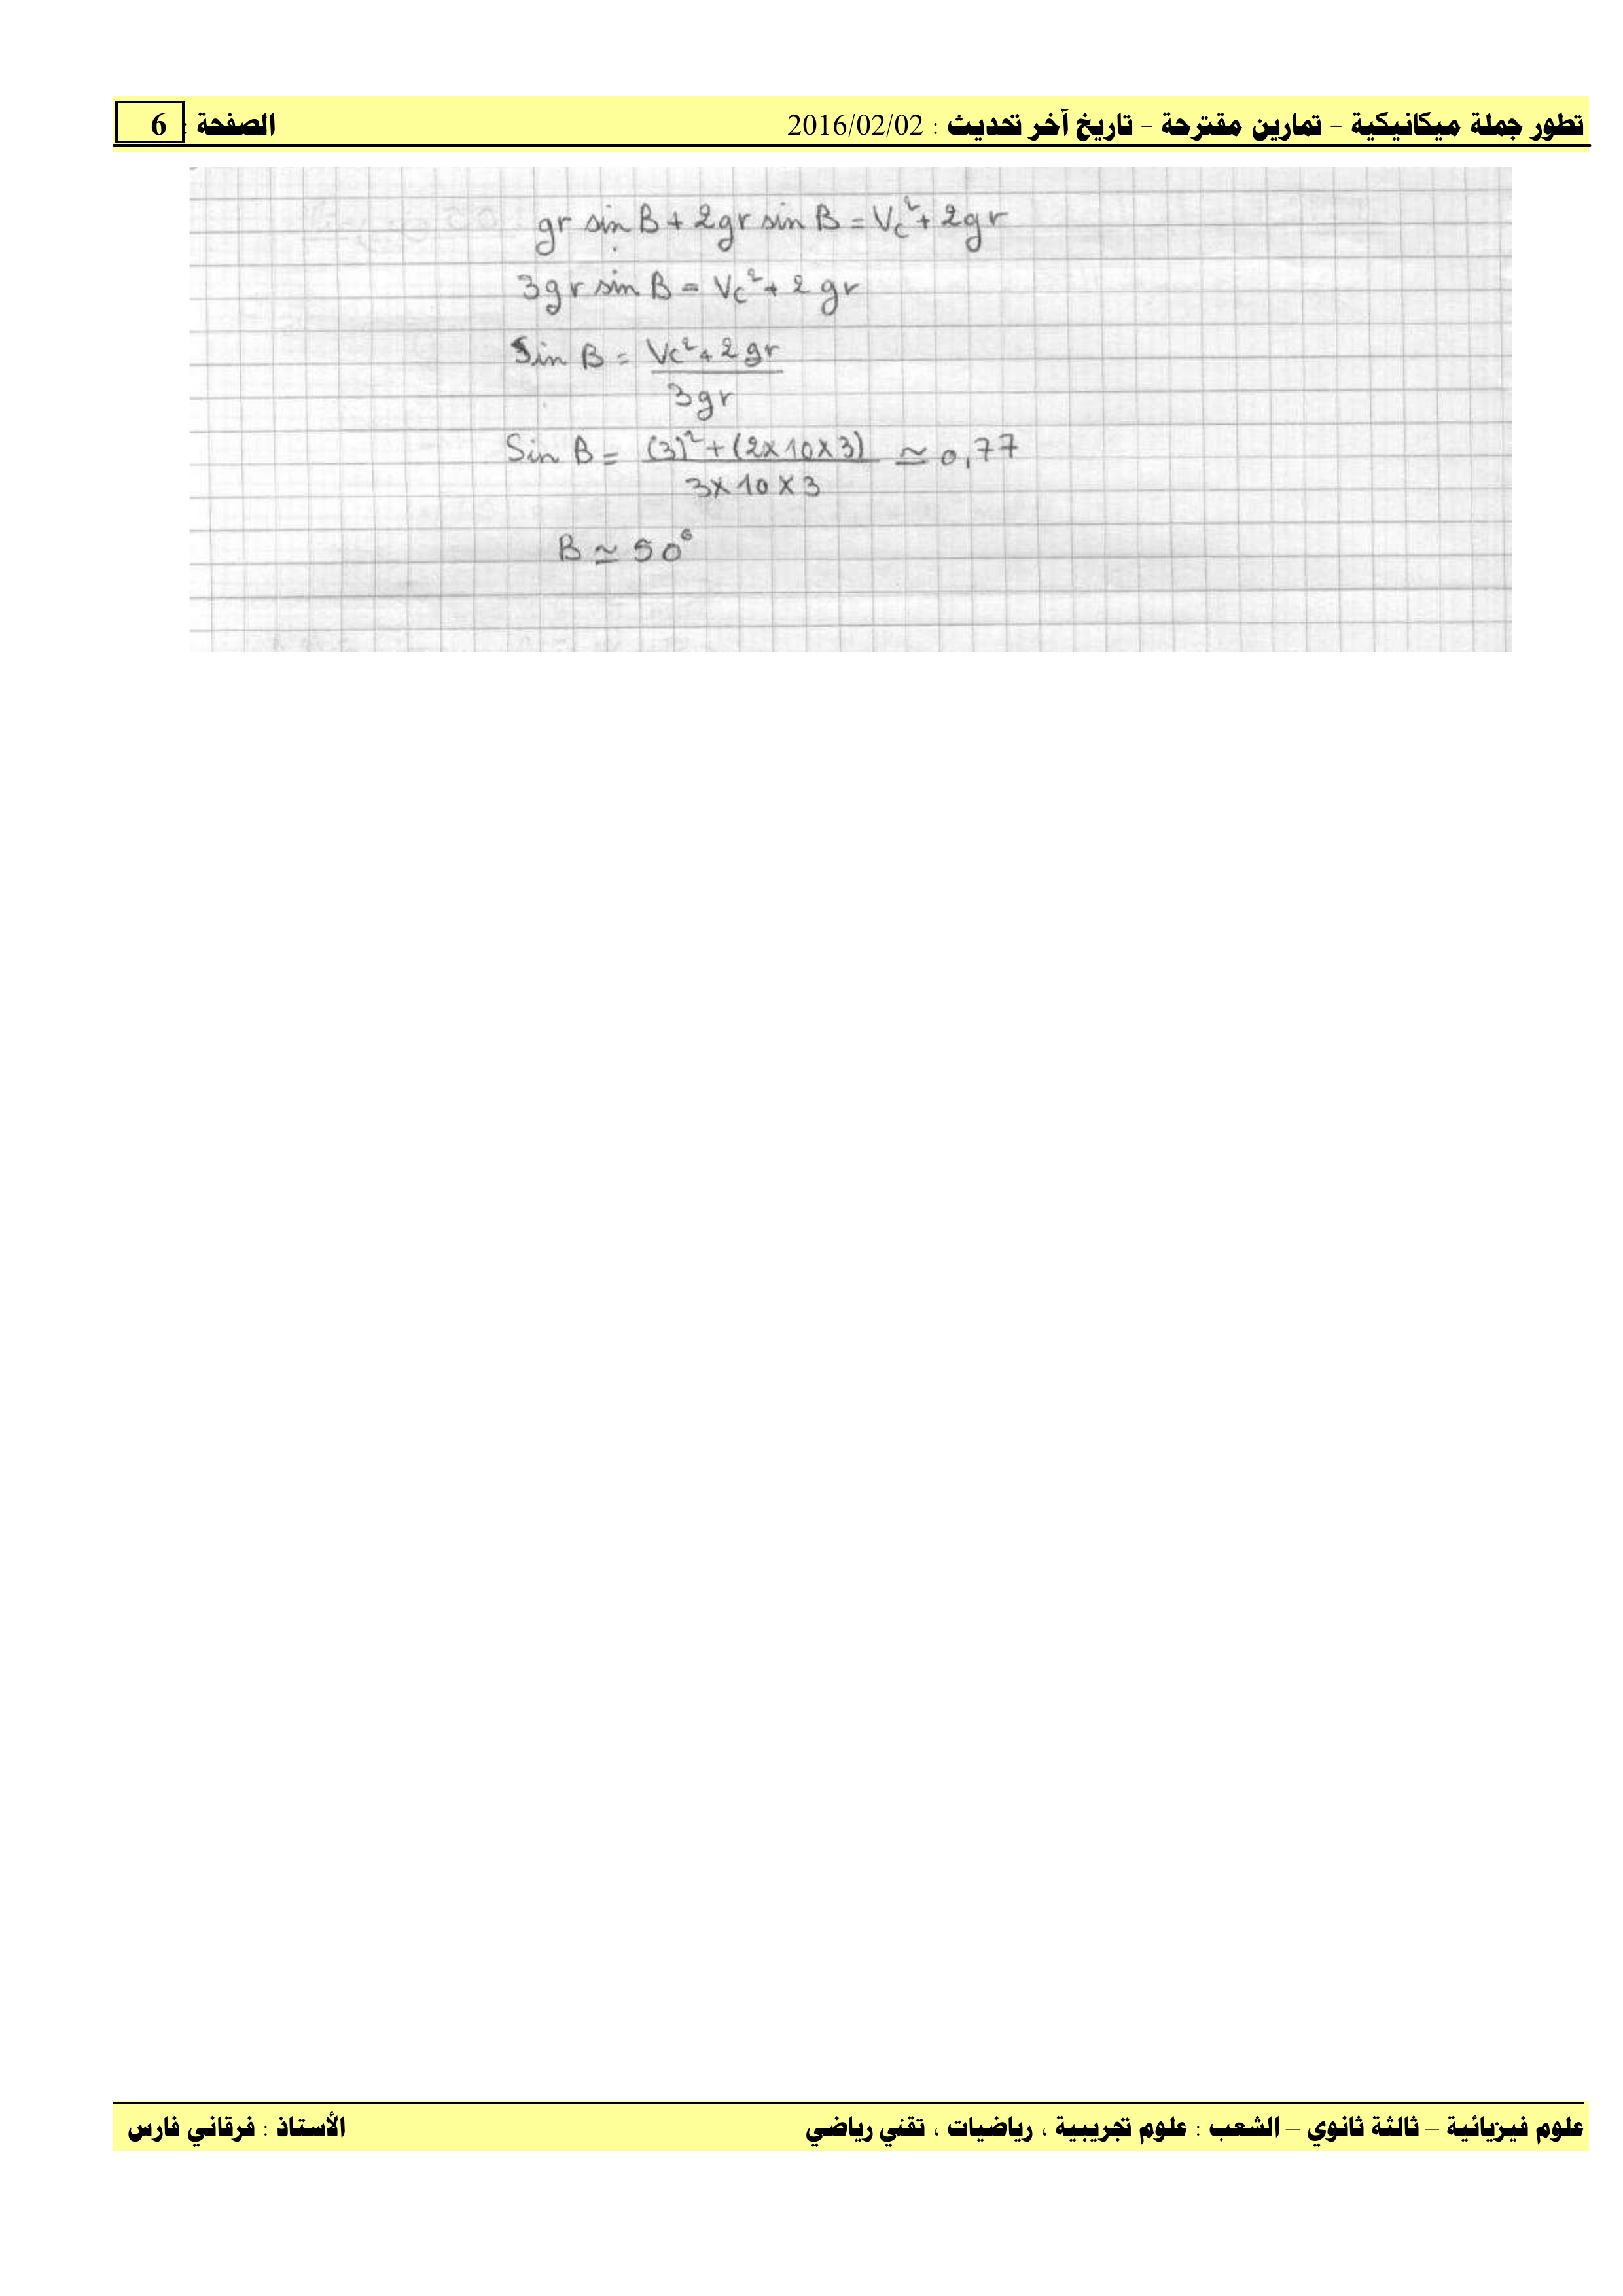 تطور جملة ميكانيكية - تمارين مقترحة - تاريخ آخر تحديث : 2016/02/02 الصفحة : 6
gr sin B + 2gr sin B = Vc² + 2gr
3gr sin B = Vc² + 2gr
Sin B = Vc² + 2gr
3gr
Sin B = (3)² + (2×10×3) ≃ 0,77
3×10×3
B ≃ 50°
علوم فيزيائية – ثالثة ثانوي – الشعب : علوم تجريبية ، رياضيات ، تقني رياضي الأستاذ : فرقاني فارس